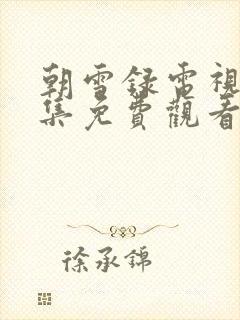 朝雪録電視
集免費觀看
徐承錦